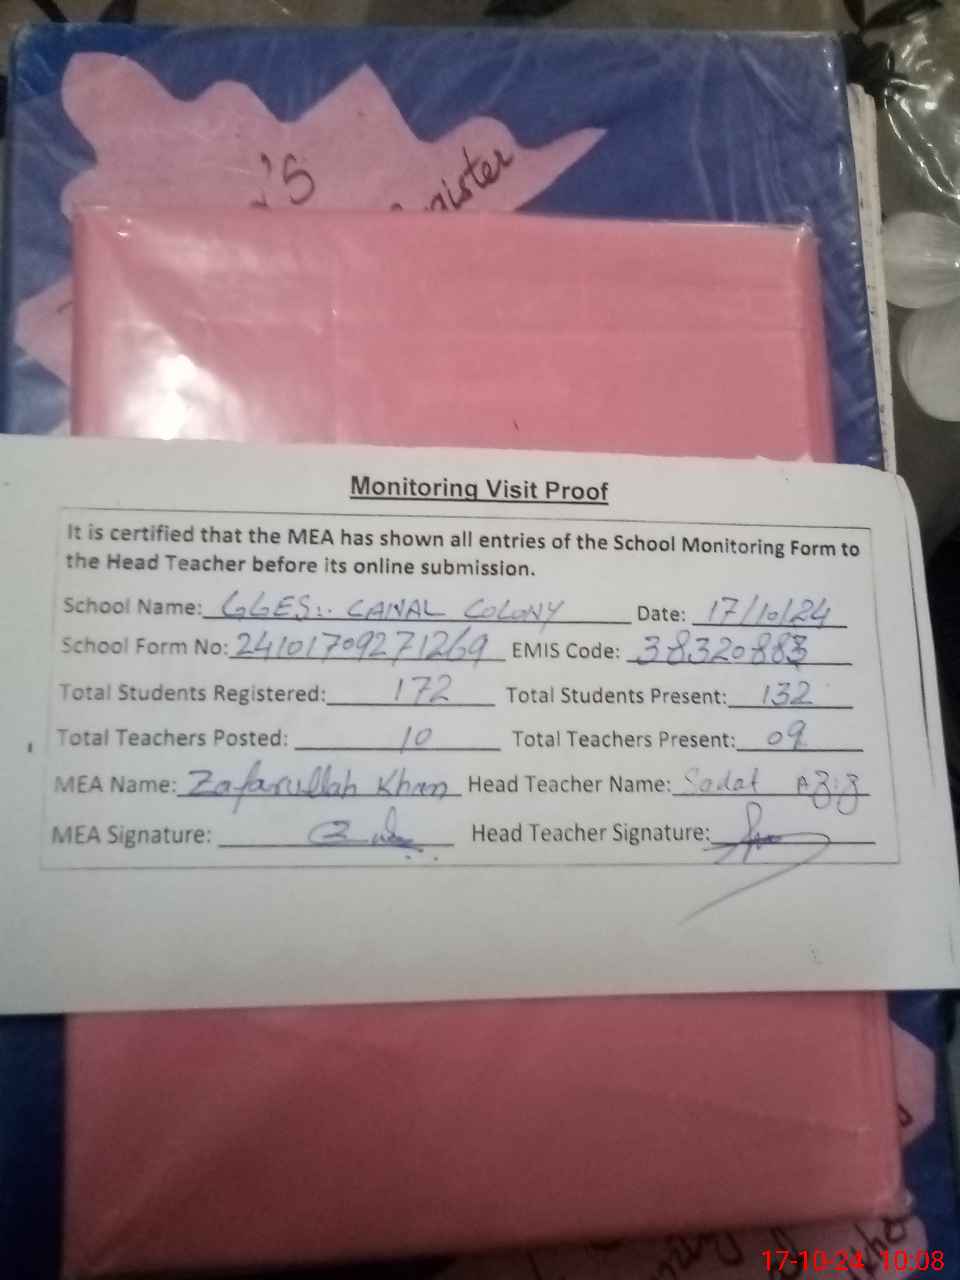 's
Register
Monitoring Visit Proof
It is certified that the MEA has shown all entries of the School Monitoring Form to
the Head Teacher before its online submission.
School Name: GGES:. CANAL COLONY Date: 17/10/24
School Form No: 24101709271269 EMIS Code: 38320883
Total Students Registered: 172 Total Students Present: 132
Total Teachers Posted: 10 Total Teachers Present: 09
MEA Name: Zafarullah Khan Head Teacher Name: Sadat Aziz
MEA Signature: Head Teacher Signature:
17-10-24 10:08